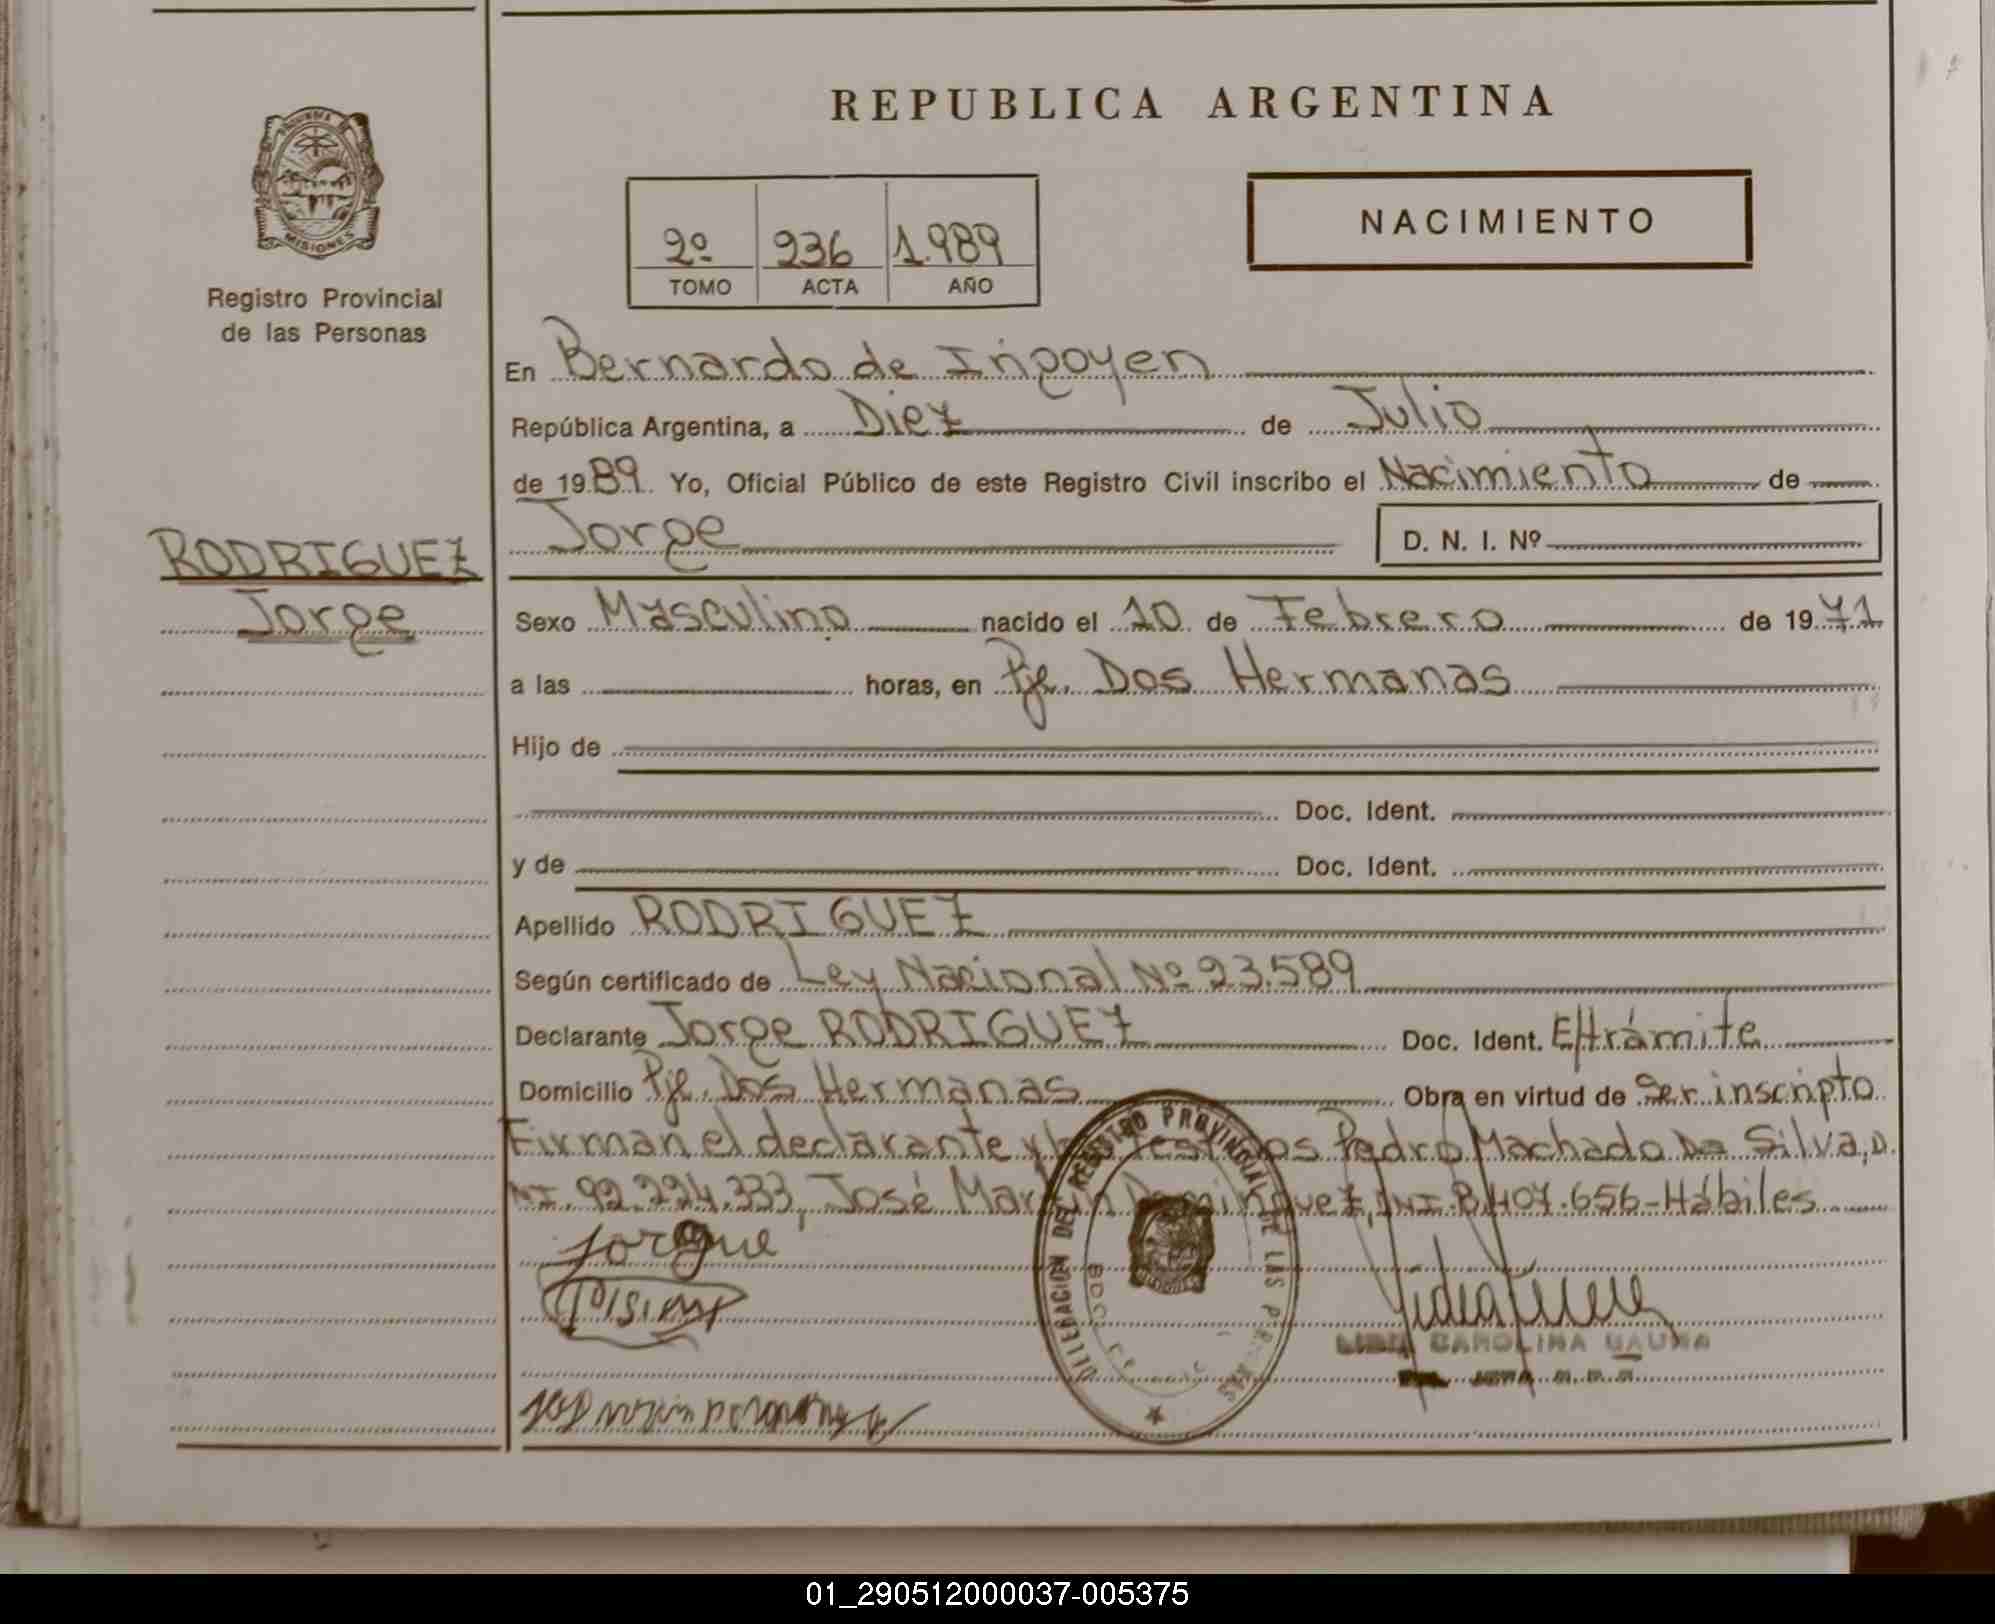 REPUBLICA ARGENTINA
PROVINCIA DE
MISIONES
Registro Provincial
de las Personas
2º 236 1.989
TOMO ACTA AÑO
NACIMIENTO
En Bernardo de Irigoyen
República Argentina, a Diez de Julio
de 1989. Yo, Oficial Público de este Registro Civil inscribo el Nacimiento de
Jorge D. N. I. Nº
RODRIGUEZ
Jorge
Sexo Masculino nacido el 10 de Febrero de 1971
a las horas, en Pje. Dos Hermanas
Hijo de
Doc. Ident.
y de Doc. Ident.
Apellido RODRIGUEZ
Según certificado de Ley Nacional Nº 23.589
Declarante Jorge RODRIGUEZ Doc. Ident. E/trámite
Domicilio Pje. Dos Hermanas Obra en virtud de Ser inscripto
Firman el declarante y los testigos Pedro Machado Da Silva, D.
NI. 92.224.333, José Martín Dominguez, DNI. 8.407.656-Hábiles
Jorgue
DELEGACION DEL REGISTRO PROVINCIAL DE LAS PERSONAS
CAROLINA GAUNA
01_290512000037-005375